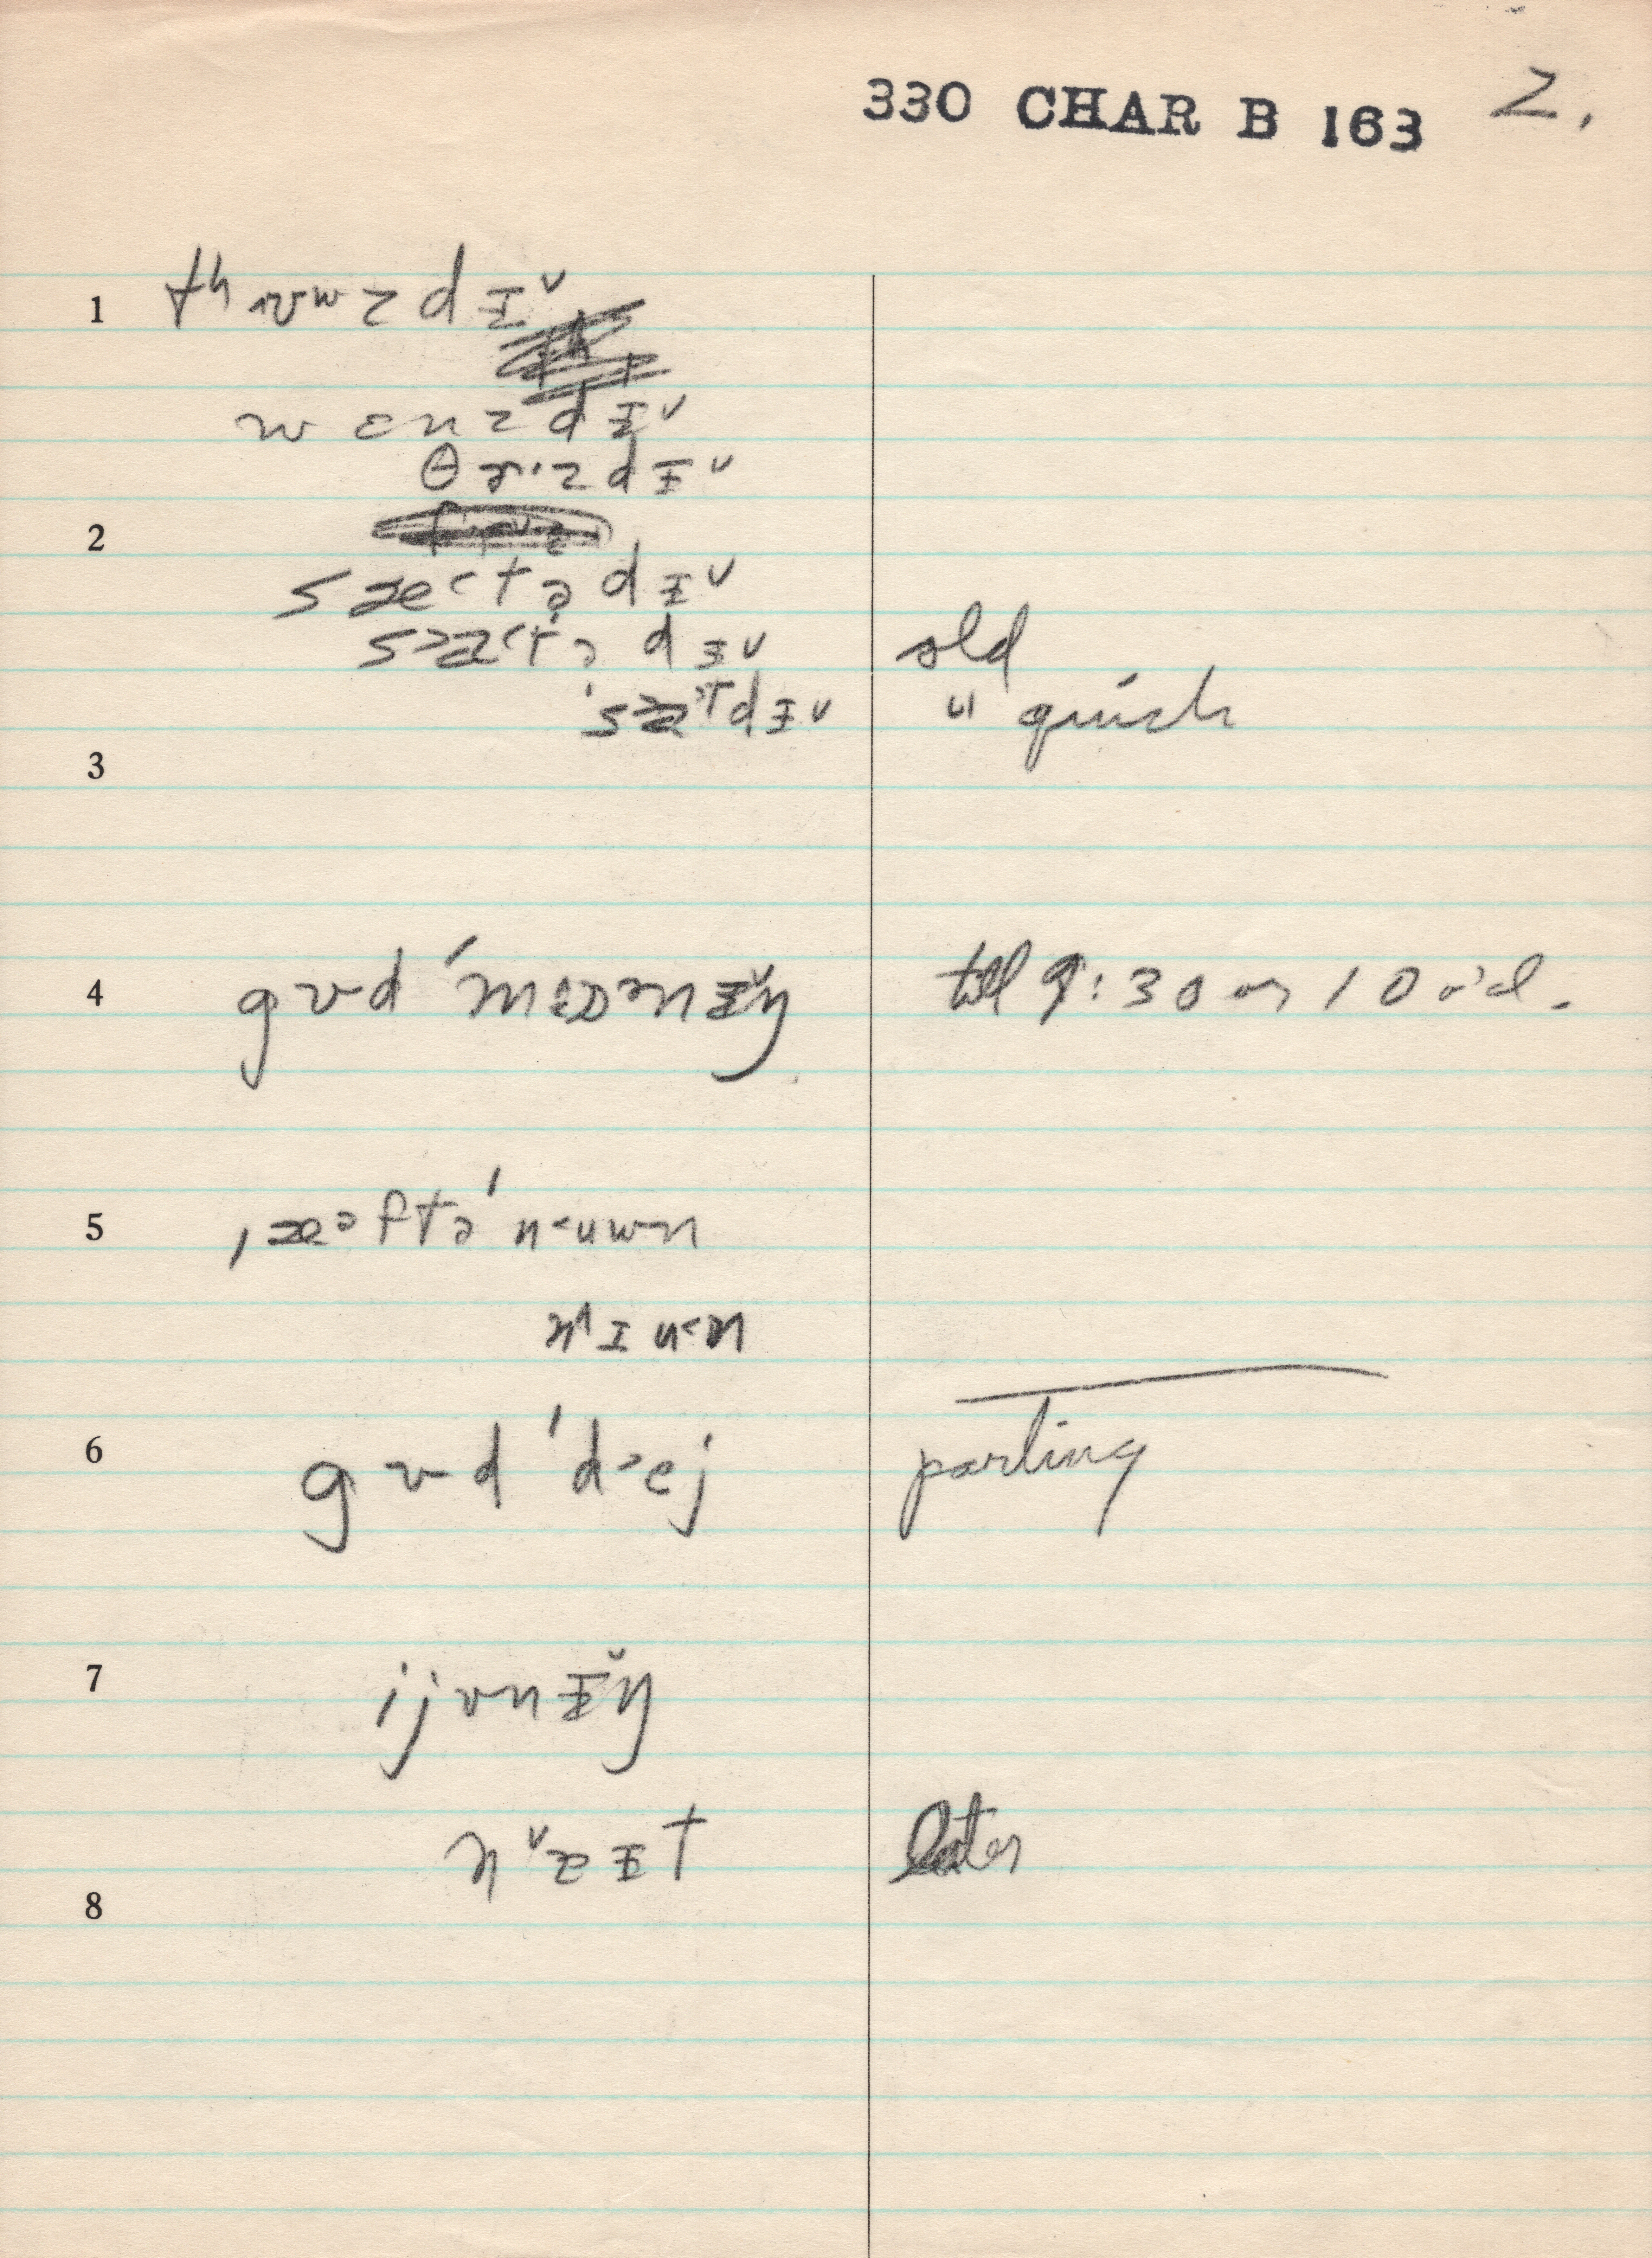 330 CHAR B 163 2.
1 tʰ ʊʷ z d ɪ ˅
w ɛ n z d ɪ ˅
θ ɚ · z d ɪ ˅
2
s æ ˂ t ə d ɪ ˅
s ˃ æ ˂ t ə d ɪ ˅ old
's ˃ æ ˀ T d ɪ ˅ " quick
3
4 g ʊ d 'm ɒ ɚ n ɪ ˅ ŋ till 9:30 or 10 o'cl.
5 ˌæ ᵊ f t ə ' n ˂ u w n
n ˄ ɪ u ˂ n
6 g ʊ d 'd ˃ e j parting
7 i j v n ɪ ˅ ŋ
n ˅ ɪ t later
8